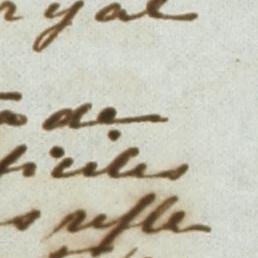 r y al
de
ficiles
s refle